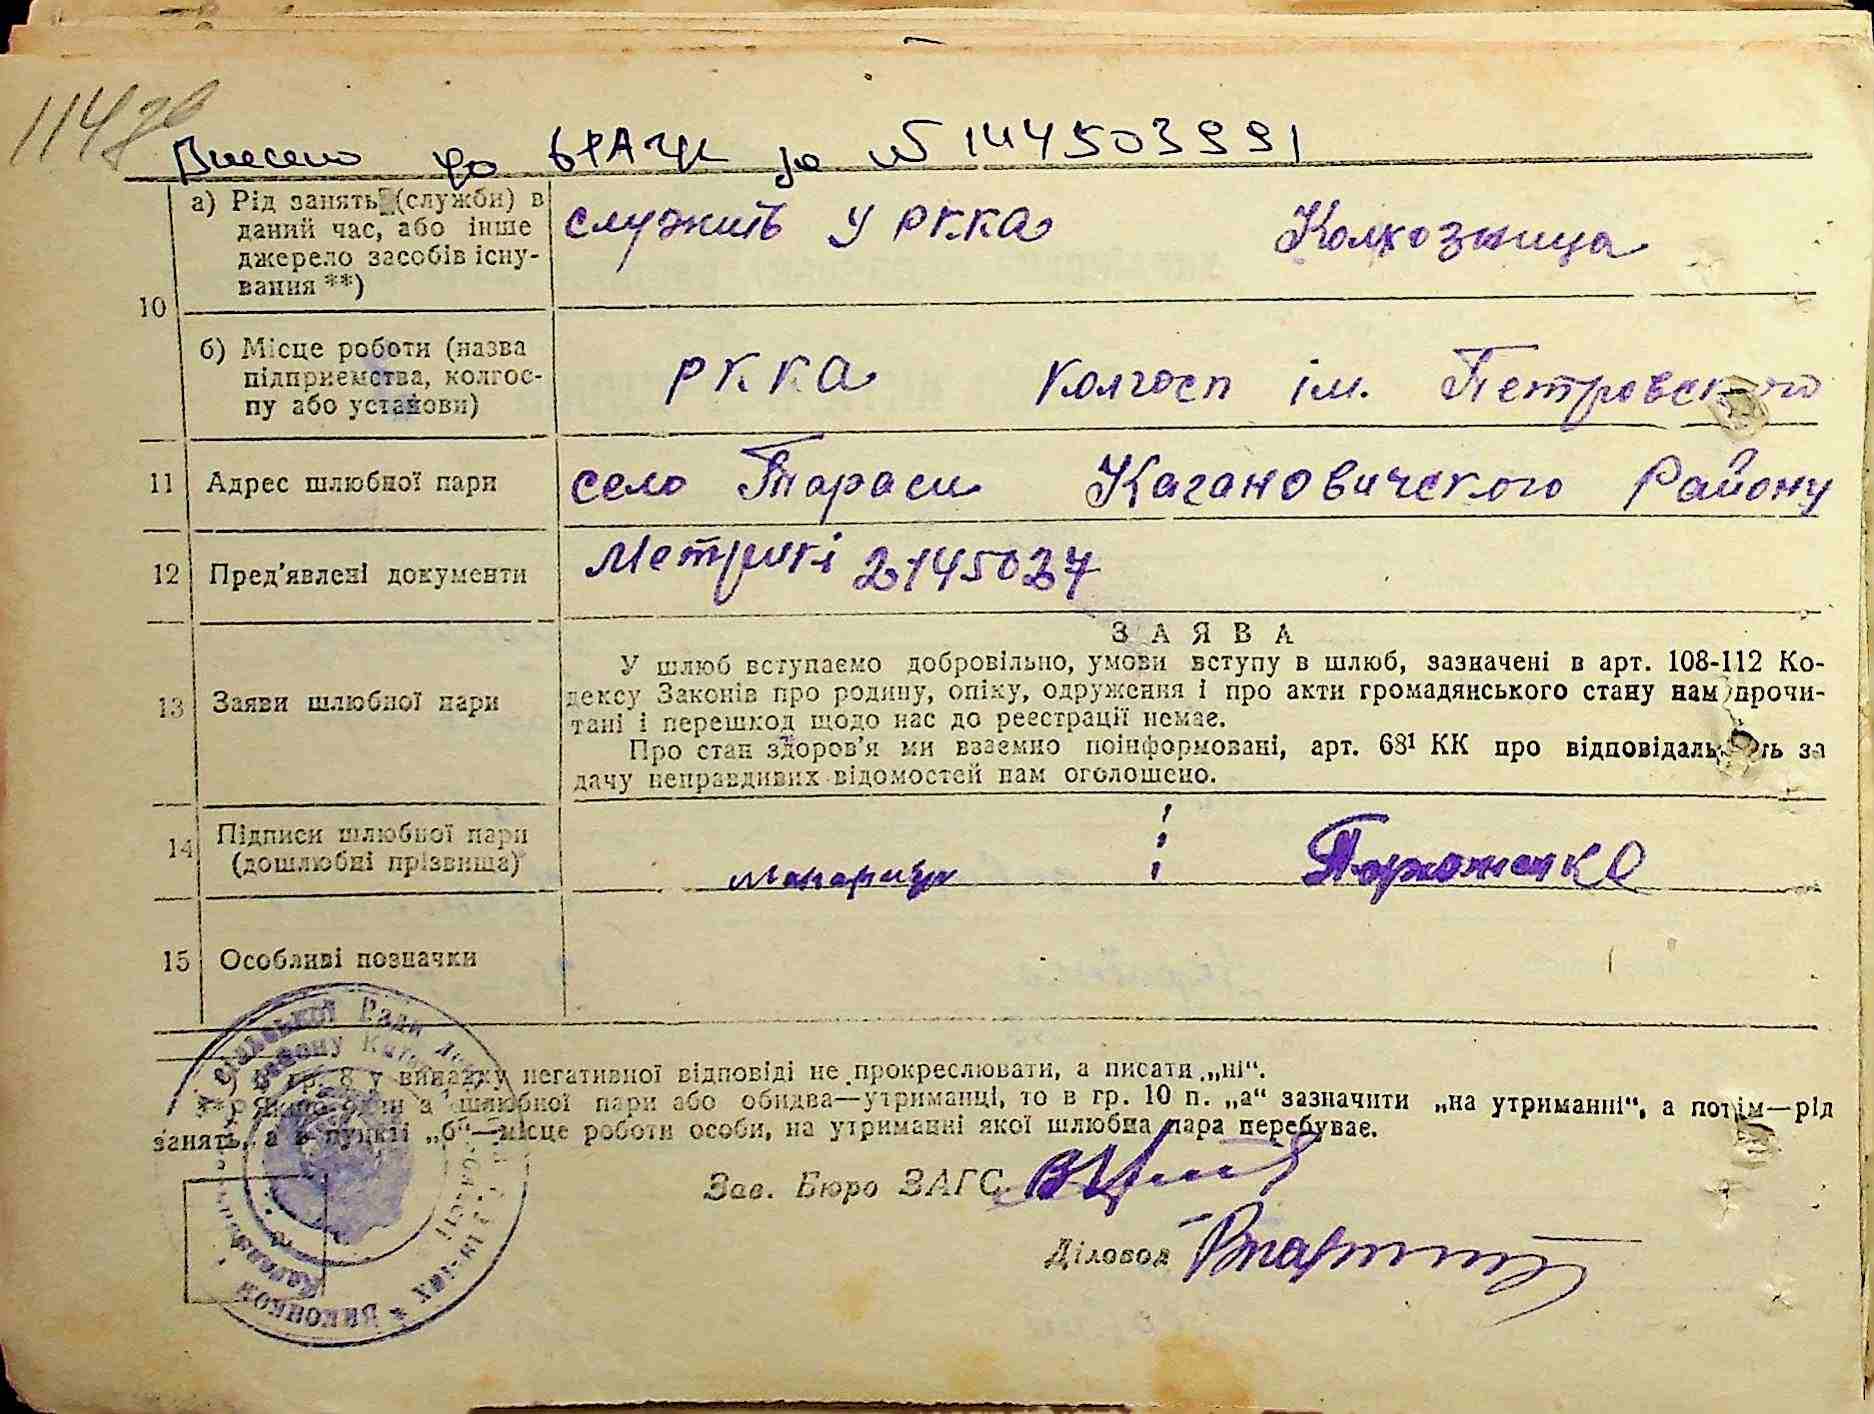 114 зв
Внесено до ДРАЦС за № 144503991
10
а) Рід занять (служби) в даний час, або інше джерело засобів існування **)
служить у РККА Колхозница
б) Місце роботи (назва підприємства, колгоспу або установи)
РККА Колгосп ім. Петровського
11 Адрес шлюбної пари
село Тараси Кагановичского Району
12 Пред'явлені документи
Метрикі 2145027
13 Заяви шлюбної пари
ЗАЯВА
У шлюб вступаємо добровільно, умови вступу в шлюб, зазначені в арт. 108-112 Ко-
дексу Законів про родину, опіку, одруження і про акти громадянського стану нам прочи-
тані і перешкод щодо нас до реєстрації немає.
Про стан здоров'я ми взаємно поінформовані, арт. 68¹ КК про відповідальність за
дачу неправдивих відомостей нам оголошено.
14 Підписи шлюбної пари
(дошлюбні прізвища)
15 Особливі позначки
гр. 8 у випадку негативної відповіді не прокреслювати, а писати „ні“.
Якщо один з шлюбної пари або обидва—утриманці, то в гр. 10 п. „а“ зазначити „на утриманні“, а потім—рід
занять, а в пункті „б“—місце роботи особи, на утриманні якої шлюбна пара перебуває.
Зав. Бюро ЗАГС
Діловод